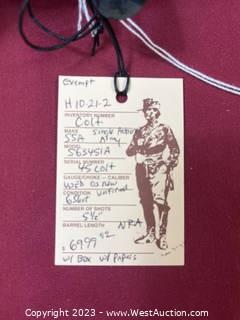 Exempt
H 10-21-2
INVENTORY NUMBER
Colt
MAKE
Single Action
SSA Army
MODEL
S63451A
SERIAL NUMBER
45 Colt
GAUGE/CHOKE - CALIBER
as new
CONDITION Unfired
6 shot
NUMBER OF SHOTS
5½"
BARREL LENGTH
NRA
$6999
w/ Box w/ Papers
Copyright 2023 - www.WestAuction.com